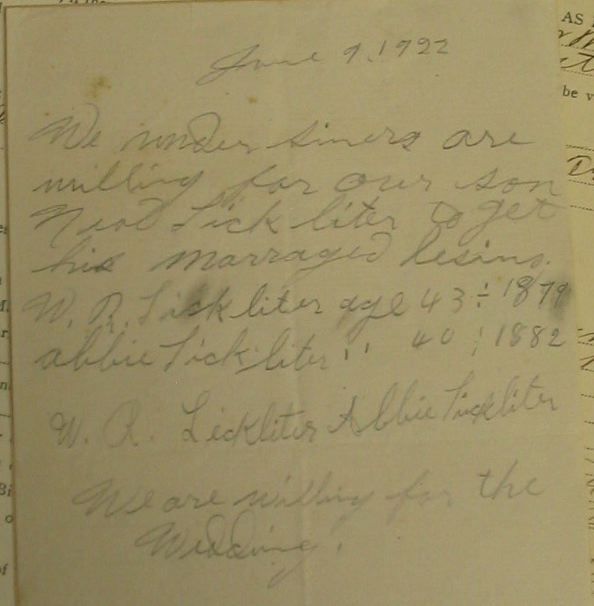 June 9, 1922
We under siners are
willing for our son
Neal Lickliter to get
his marraged lesins.
W. R. Lickliter age 43 ÷ 1879
abbie Lickliter " 40 ÷ 1882
W. R. Lickliter Abbie Lickliter
We are willing for the
Wedding.
AS
be v